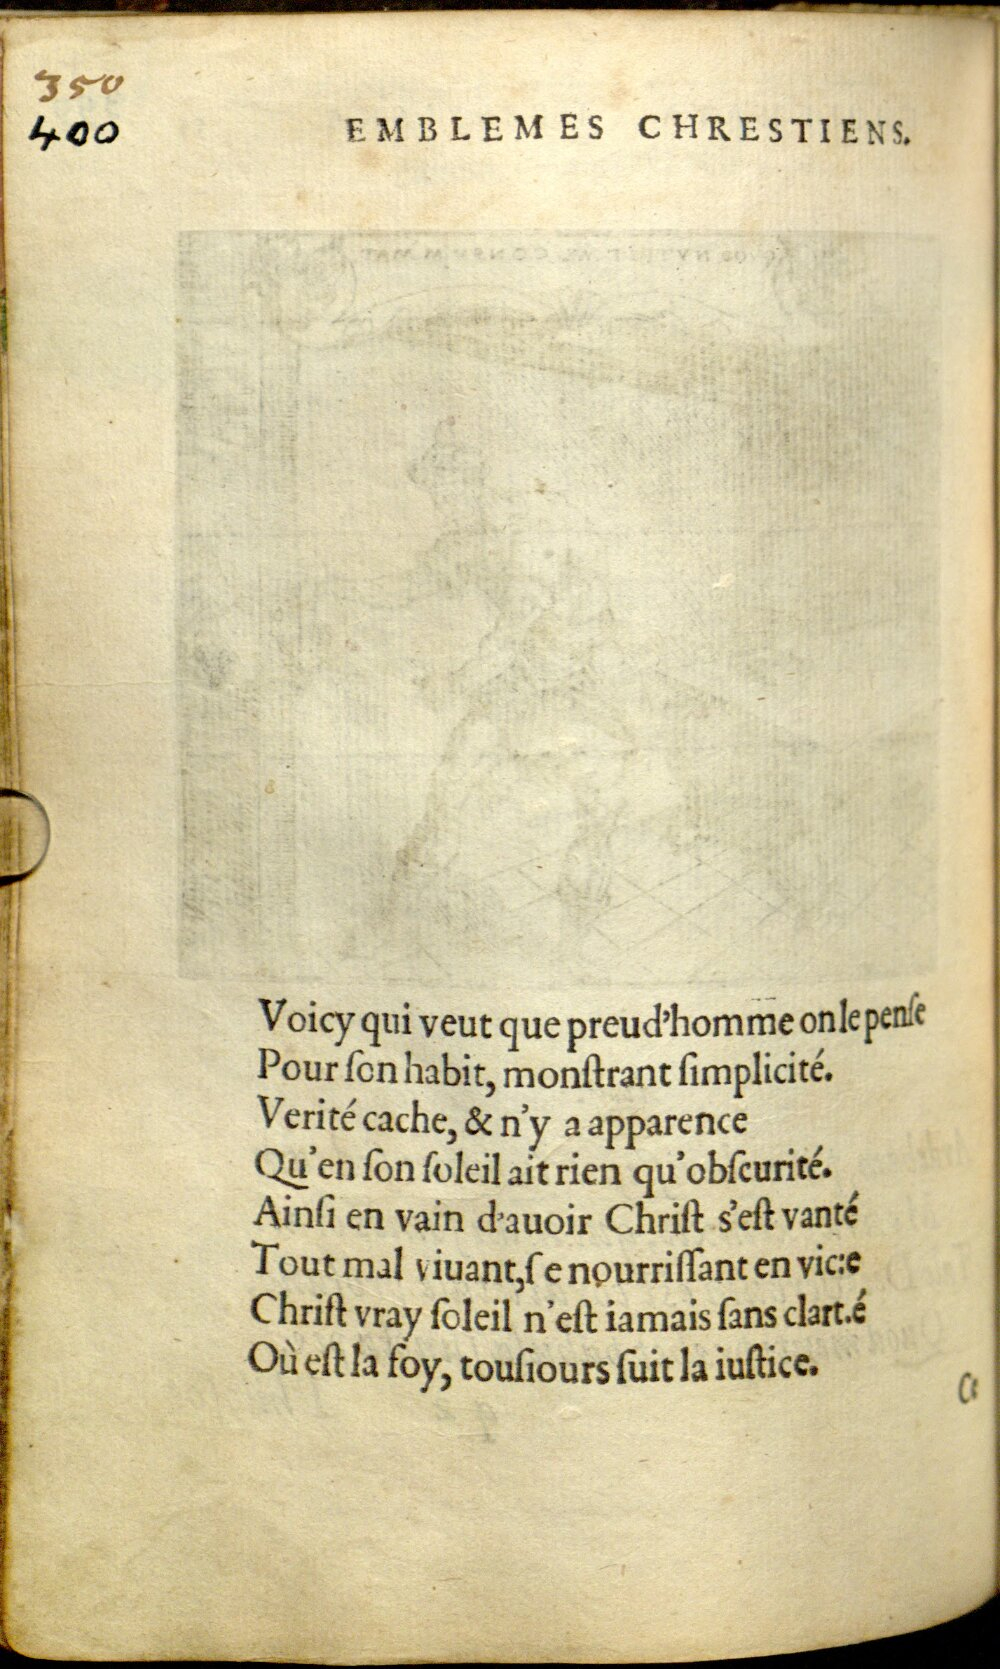 350
400
EMBLEMES CHRESTIENS.
Voicy qui veut que preud'homme on le penſe
Pour ſon habit, monſtrant ſimplicité.
Verité cache, & n'y a apparence
Qu'en ſon ſoleil ait rien qu'obſcurité.
Ainſi en vain d'auoir Chriſt s'eſt vanté
Tout mal viuant, ſe nourriſſant en vic:e
Chriſt vray ſoleil n'eſt iamais ſans clart.é
Où eſt la foy, touſiours ſuit la iuſtice.